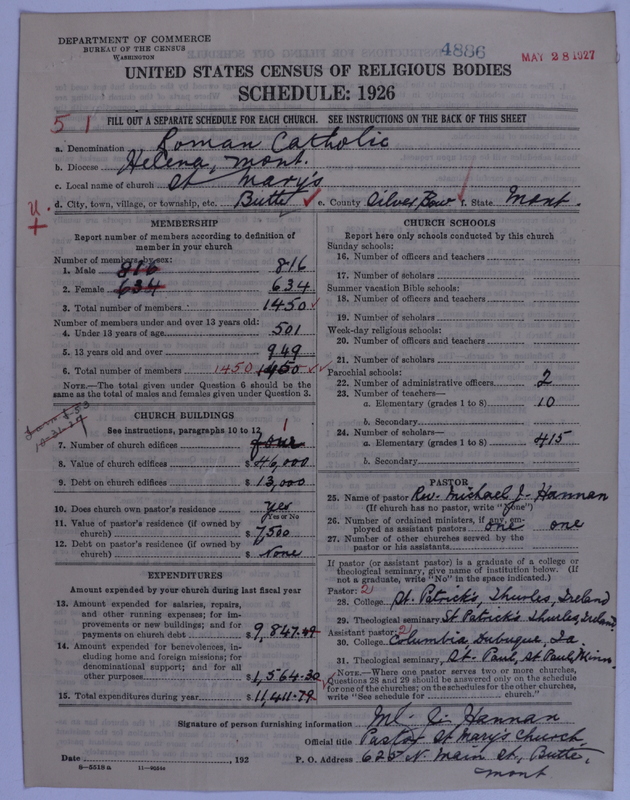 DEPARTMENT OF COMMERCE
BUREAU OF THE CENSUS
WASHINGTON
4886
MAY 28 1927
UNITED STATES CENSUS OF RELIGIOUS BODIES
SCHEDULE: 1926
51
FILL OUT A SEPARATE SCHEDULE FOR EACH CHURCH. SEE INSTRUCTIONS ON THE BACK OF THIS SHEET
a. Denomination Roman Catholic
b. Diocese Helena, Mont.
c. Local name of church St Mary's
d. City, town, village, or township, etc. Butte e. County Silver Bow f. State Mont.
MEMBERSHIP
Report number of members according to definition of
member in your church
Number of members by sex:
1. Male 816 816
2. Female 634 634
3. Total number of members 1450
Number of members under and over 13 years old:
4. Under 13 years of age 501
5. 13 years old and over 949
6. Total number of members 1450 1450
NOTE.—The total given under Question 6 should be the
same as the total of males and females given under Question 3.
CHURCH BUILDINGS
See instructions, paragraphs 10 to 12
7. Number of church edifices four 1
8. Value of church edifices $46,000
9. Debt on church edifices $13,000
10. Does church own pastor's residence yes
Yes or No
11. Value of pastor's residence (if owned by
church) $7500
12. Debt on pastor's residence (if owned by
church) $None
EXPENDITURES
Amount expended by church during last fiscal year
13. Amount expended for salaries, repairs,
and other running expenses; for im-
provements or new buildings; and for
payments on church debt $9,847.49
14. Amount expended for benevolences, in-
cluding home and foreign missions; for
denominational support; and for all
other purposes $1,564.30
15. Total expenditures during year $11,411.79
CHURCH SCHOOLS
Report here only schools conducted by this church
Sunday schools:
16. Number of officers and teachers
17. Number of scholars
Summer vacation Bible schools:
18. Number of officers and teachers
19. Number of scholars
Week-day religious schools:
20. Number of officers and teachers
21. Number of scholars
Parochial schools:
22. Number of administrative officers 2
23. Number of teachers—
a. Elementary (grades 1 to 8) 10
b. Secondary
24. Number of scholars—
a. Elementary (grades 1 to 8) 415
b. Secondary
PASTOR
25. Name of pastor Rev. Michael J. Hannan
(If church has no pastor, write "None")
26. Number of ordained ministers, if any, em-
ployed as assistant pastors one one
27. Number of other churches served by the
pastor or his assistants
If pastor (or assistant pastor) is a graduate of a college or
theological seminary, give name of institution below. (If
not a graduate, write "No" in the space indicated.)
Pastor: 2
28. College St. Patrick's Thurles, Ireland
29. Theological seminary St Patrick's Thurles, Ireland
Assistant pastor: 2
30. College Columbia, Dubuque, Ia.
31. Theological seminary, St. Paul, St Paul, Minn.
NOTE.—Where one pastor serves two or more churches,
Questions 28 and 29 should be answered only on the schedule
for one of the churches; on the schedules for the other churches,
write "See schedule for church."
Signature of person furnishing information Ml. J. Hannan
Official title Pastor St Mary's Church
Date , 192 P. O. Address 625 N. Main St, Butte,
Mont
8-5518a 11-9554